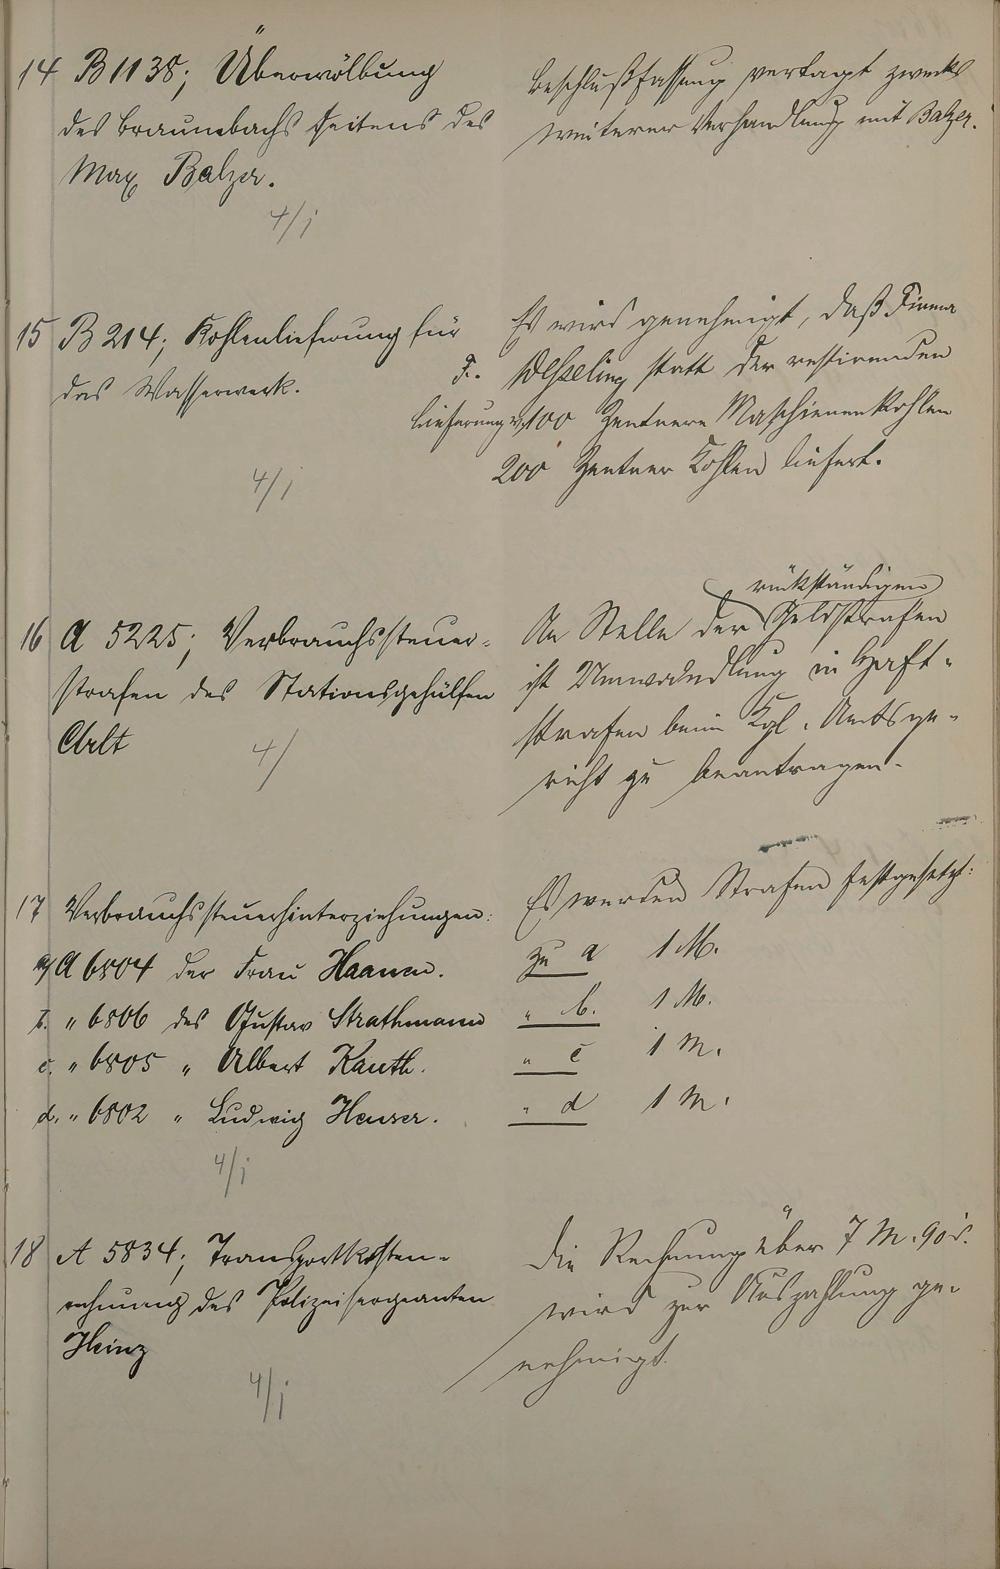 14 B 1138; Überwölbung
des Braunebachs seitens des
Max Balzer.
4/j
Beschlußfassung vertagt zwecks
weiterer Verhandlung mit Balzer.
15 B 214; Kohlenlieferung für
das Wasserwerk.
4/j
Es wird genehmigt, daß Firma
F. Wesseling statt der restirenden
Lieferung v. 100 Zentnern Maschienenkohlen
200 Zentner Kohlen liefert.
16 A 5225; Verbrauchssteuer-
strafen des Stationsgehülfen
Arlt
4/
rückständigen
An Stelle der Geldstrafen
ist Umwandlung in Haft-
strafen beim Kgl. Amtsge-
richt zu beantragen.
17 Verbrauchssteuerhinterziehungen:
a/ A 6804 der Frau Haamen.
b. " 6806 des Gustav Strathmann
c. " 6805 " Albert Kauth.
d. " 6802 " Ludwig Heuser.
4/j
Es werden Strafen festgesetzt:
zu a 1 M.
" b. 1 M.
" c 1 M.
" d 1 M.
18 A 5834; Transportkosten-
rechnung des Polizeisergeanten
Heinz
4/j
Die Rechnung über 7 M. 90 d.
wird zur Auszahlung ge-
nehmigt.